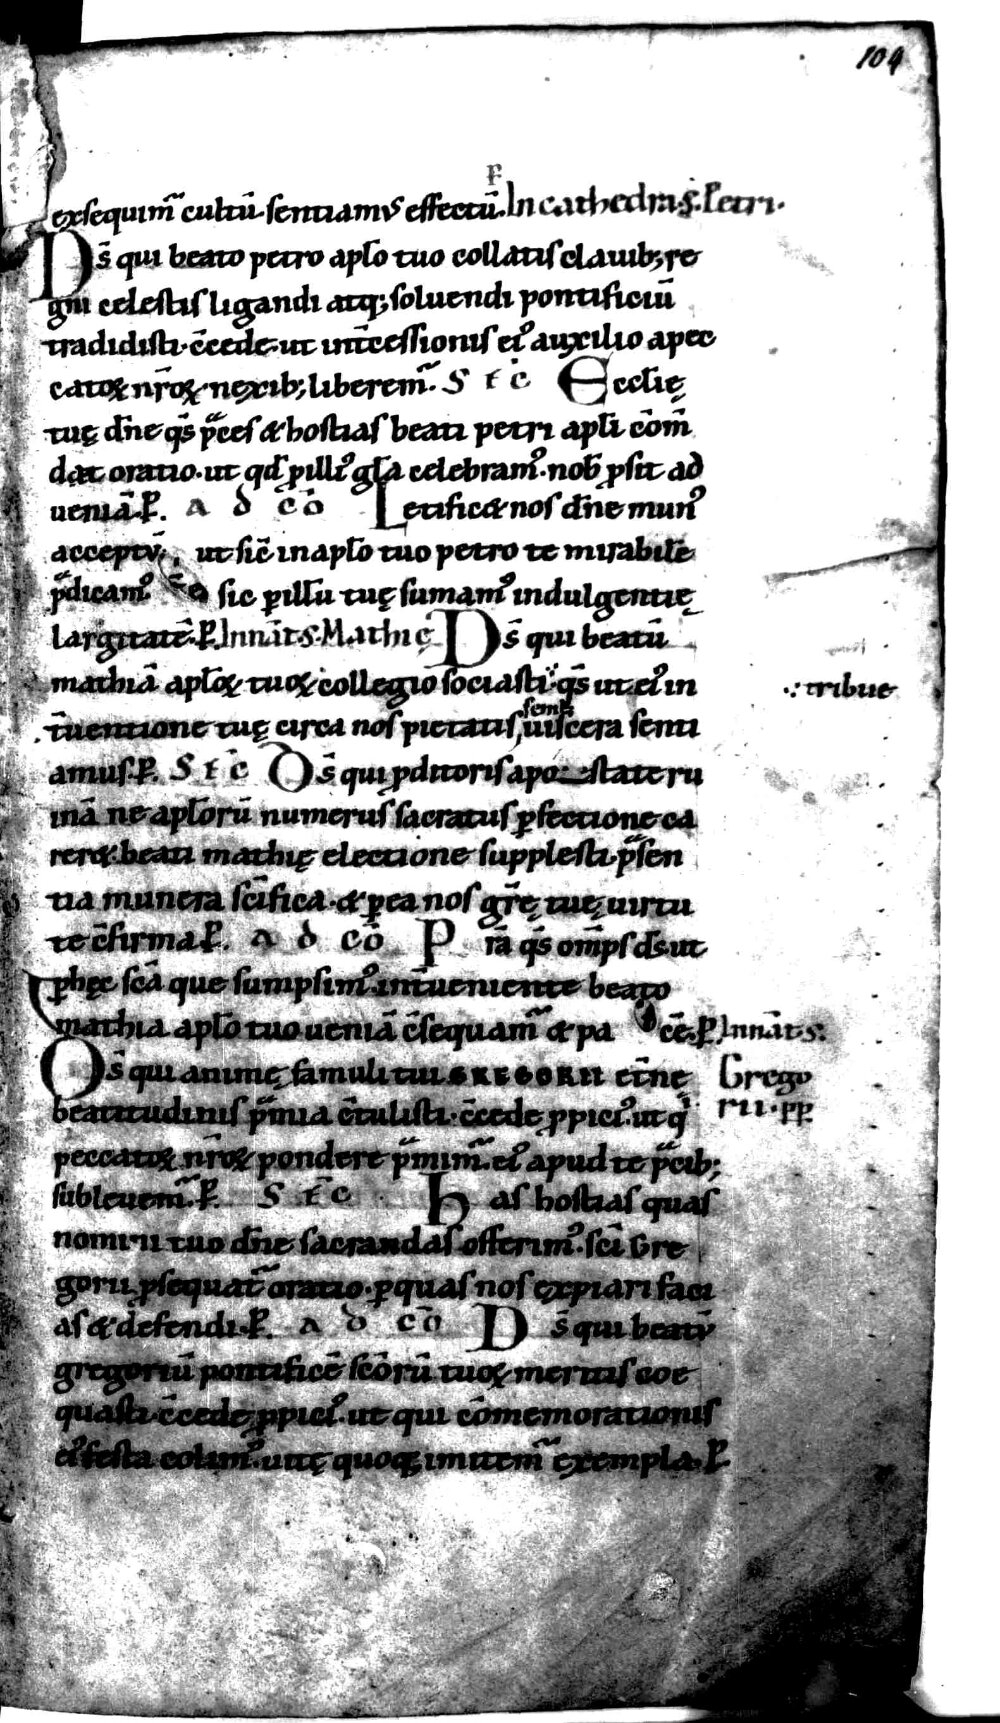 104
exsequim̃ cultū. sentiamus effectū. P̱ In cathedra S. Petri.
Ds̄ qui beato petro aplo tuo collatis clauib; re
gni celestis ligandi atq; soluendi pontificiū
tradidisti. c̄cede. ut int̄cessionis ei᷒ auxilio a pec
catoꝝ nr̄oꝝ nexib; liberem̃. S E C̄ Eccl̄ię
tuę dn̄e qs̄ p̃ces & hostias beati petri apl̄i cōm̄
dat oratio. ut qd̄ ꝑ illi᷒ gl̄a celebram᷒. nob̄ ꝓsit ad
ueniā. P̱. A D CŌ Letificet nos dn̄e mun᷒
acceptū, ut sic̄ in apl̄o tuo petro te mirabile̅
p̃dicam᷒. sic ꝑ illū tuę sumam᷒ indulgentię
largitatē. P̱. In nat̄ S. Mathię Ds̄ qui beatū
mathiā apl̄oꝝ tuoꝝ collegio sociasti ⸫ qs̄ ut ei᷒ in
⸫ tribue
t̄uentione tuę circa nos pietatis, semꝑ uiscera senti
amus. P̱. S E C̄ Ds̄ qui ꝓditoris apo state ru
inā ne apl̄orū numerus sacratus ꝑfectione ca
rer&. beati mathię electione supplesti. p̃sen
tia munera sc̄ifica. & ꝑ ea nos gr̄ę tuę uirtu
te c̄firma P̱. A D CŌ P rā qs̄ omp̄s ds̄. ut
ꝑ hęc sc̄a que sumpsim᷒. int̄ueniente beato
mathia apl̄o tuo ueniā c̄sequam̃ & pa cē. P̱. In nat̄ S.
Grego
rii. pp.
Ds̄ qui animę famuli tui GREGORII et̄nę
beatitudinis p̃mia c̄tulisti. c̄cede ꝓpici᷒. ut q¹
peccatoꝝ nr̄oꝝ pondere p̃mim̃. ei᷒ apud te p̃cib;
subleuem̃. P̱. S E C Has hostias quas
nomini tuo dn̄e sacrandas offerim᷒. sc̄i Gre
gorii ꝓsequat̃ oratio. ꝑ quas nos expiari faci
as & defendi. P̱. A D CŌ Ds̄ qui beatū
gregoriū pontificē sc̄orū tuoꝝ meritis coe
quasti. c̄cede ꝓpici᷒. ut qui cōmemorationis
ei᷒ festa colim᷒. uitę quoq; imitem̃ exempla. P̱.